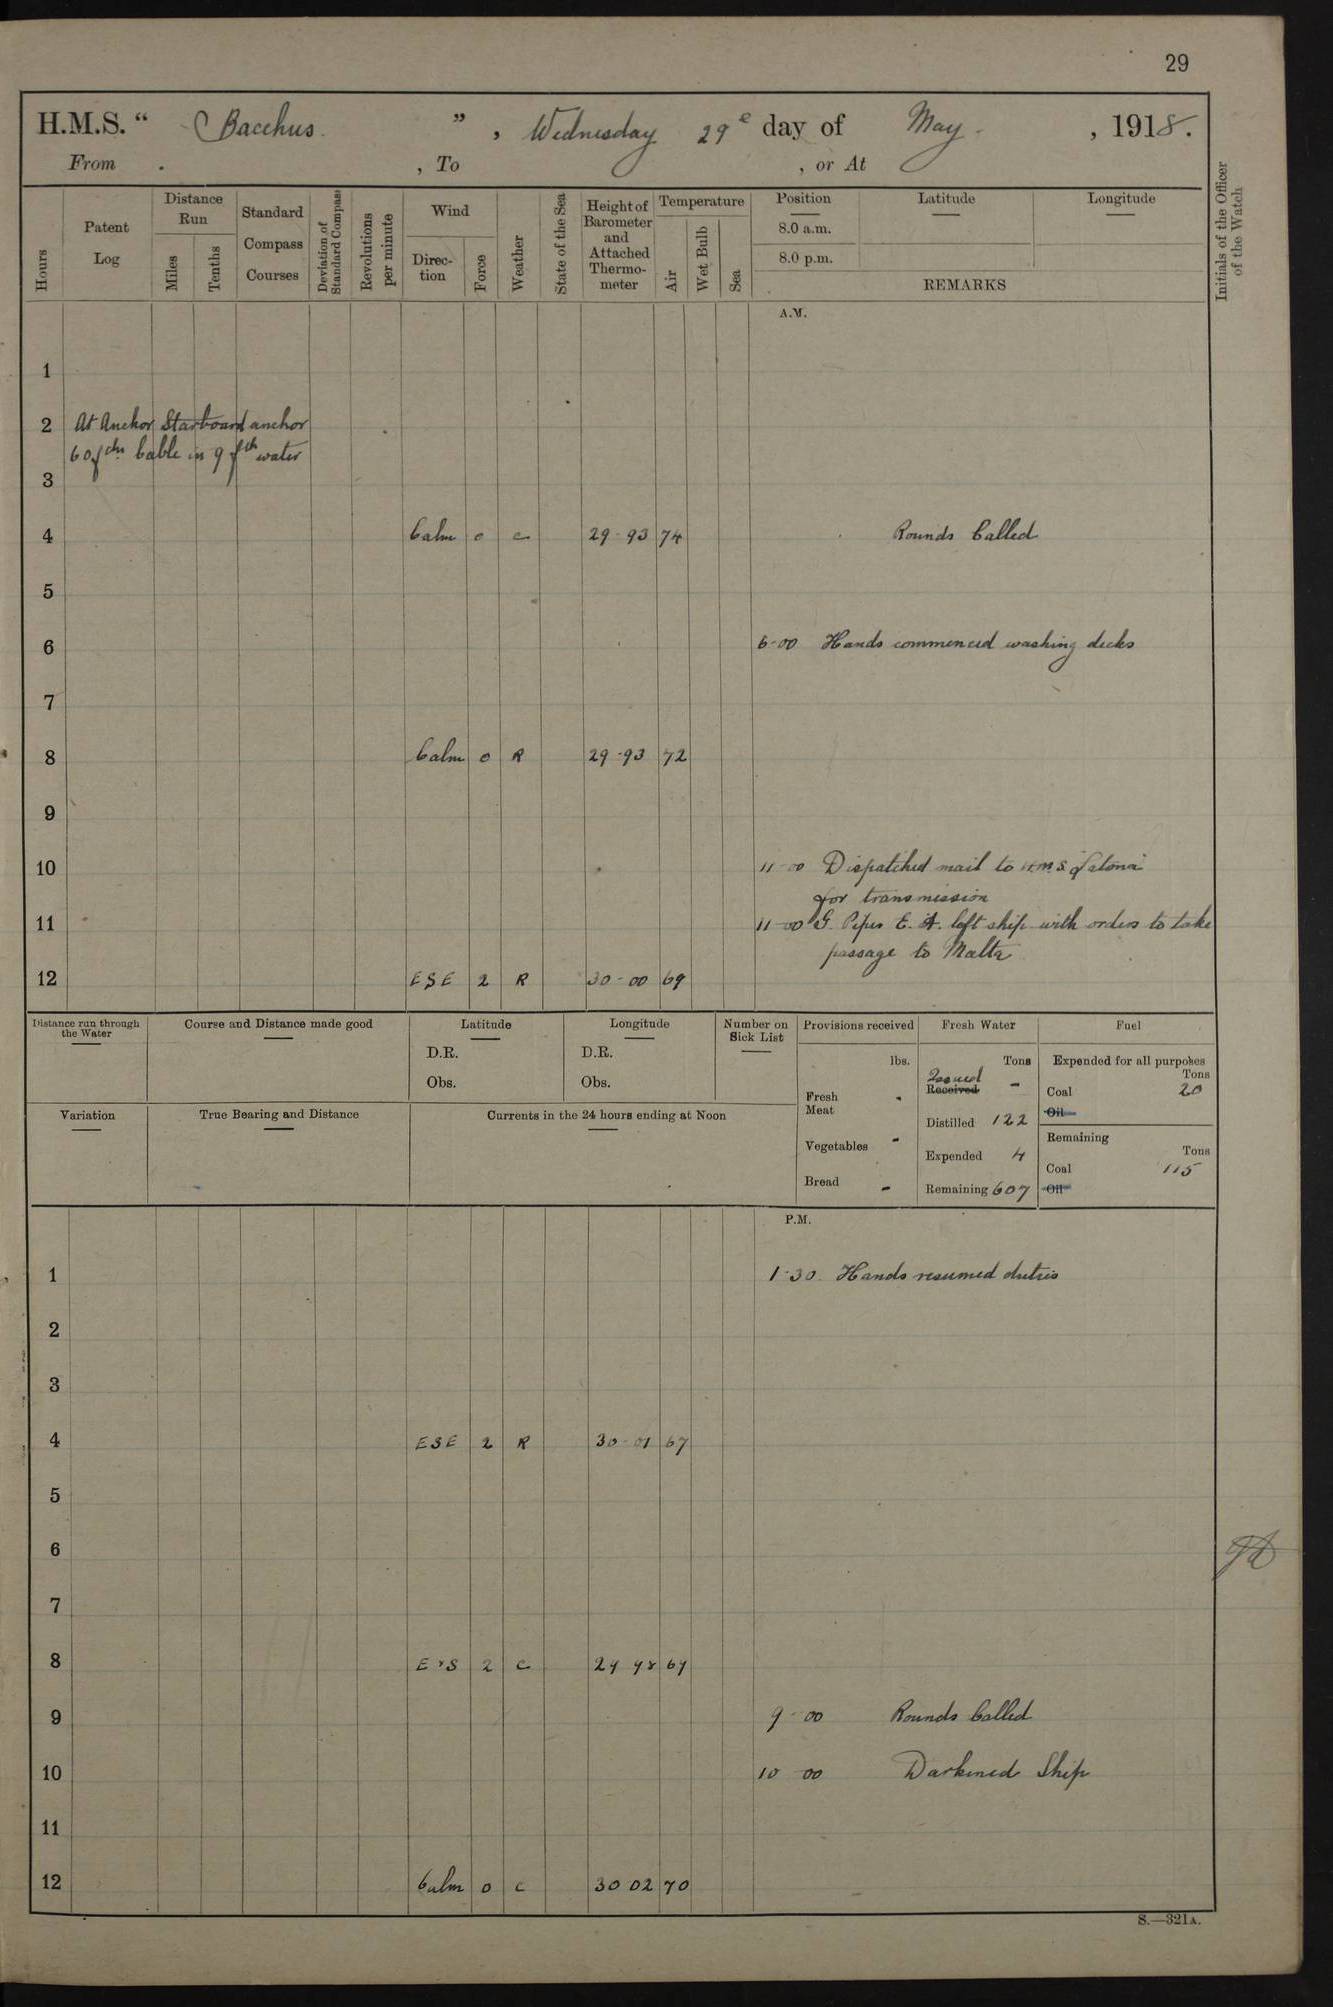 29
H.M.S. " Bacchus. ", Wednesday 29e day of May. , 1918.
From . , To , or At
Hours
Patent Log
Distance Run
Miles
Tenths
Standard Compass Courses
Deviation of Standard Compass
Revolutions per minute
Wind
Direc-tion
Force
Weather
State of the Sea
Height of Barometer and Attached Thermo-meter
Temperature
Air
Wet Bulb
Sea
Position
8.0 a.m.
8.0 p.m.
Latitude
Longitude
REMARKS
Initials of the Officer of the Watch
A.M.
1
2 At Anchor Starboard anchor
60 fths Cable in 9 fth water
3
4 Calm 0 c 29-93 74 Rounds Called
5
6 6-00 Hands commenced washing decks
7
8 Calm 0 R 29-93 72
9
10 11-00 Dispatched mail to H.M.S. Latona
for transmission
11 11-00 G. Piper E. A. left ship with orders to take
passage to Malta
12 ESE 2 R 30-00 69
Distance run through the Water
Course and Distance made good
Latitude
D.R.
Obs.
Longitude
D.R.
Obs.
Number on Sick List
Provisions received
lbs.
Fresh Meat -
Vegetables -
Bread -
Fresh Water
Tons
Issued
Received -
Distilled 122
Expended 4
Remaining 607
Fuel
Expended for all purposes
Tons
Coal 20
Oil
Remaining
Tons
Coal 115
Oil
Variation
True Bearing and Distance
Currents in the 24 hours ending at Noon
P.M.
1 1-30 Hands resumed duties
2
3
4 ESE 2 R 30-01 67
5
6
7
8 ExS 2 c 29 98 69
9 9-00 Rounds Called
10 10 00 Darkened Ship
11
12 Calm 0 c 30 02 70
S.—321A.